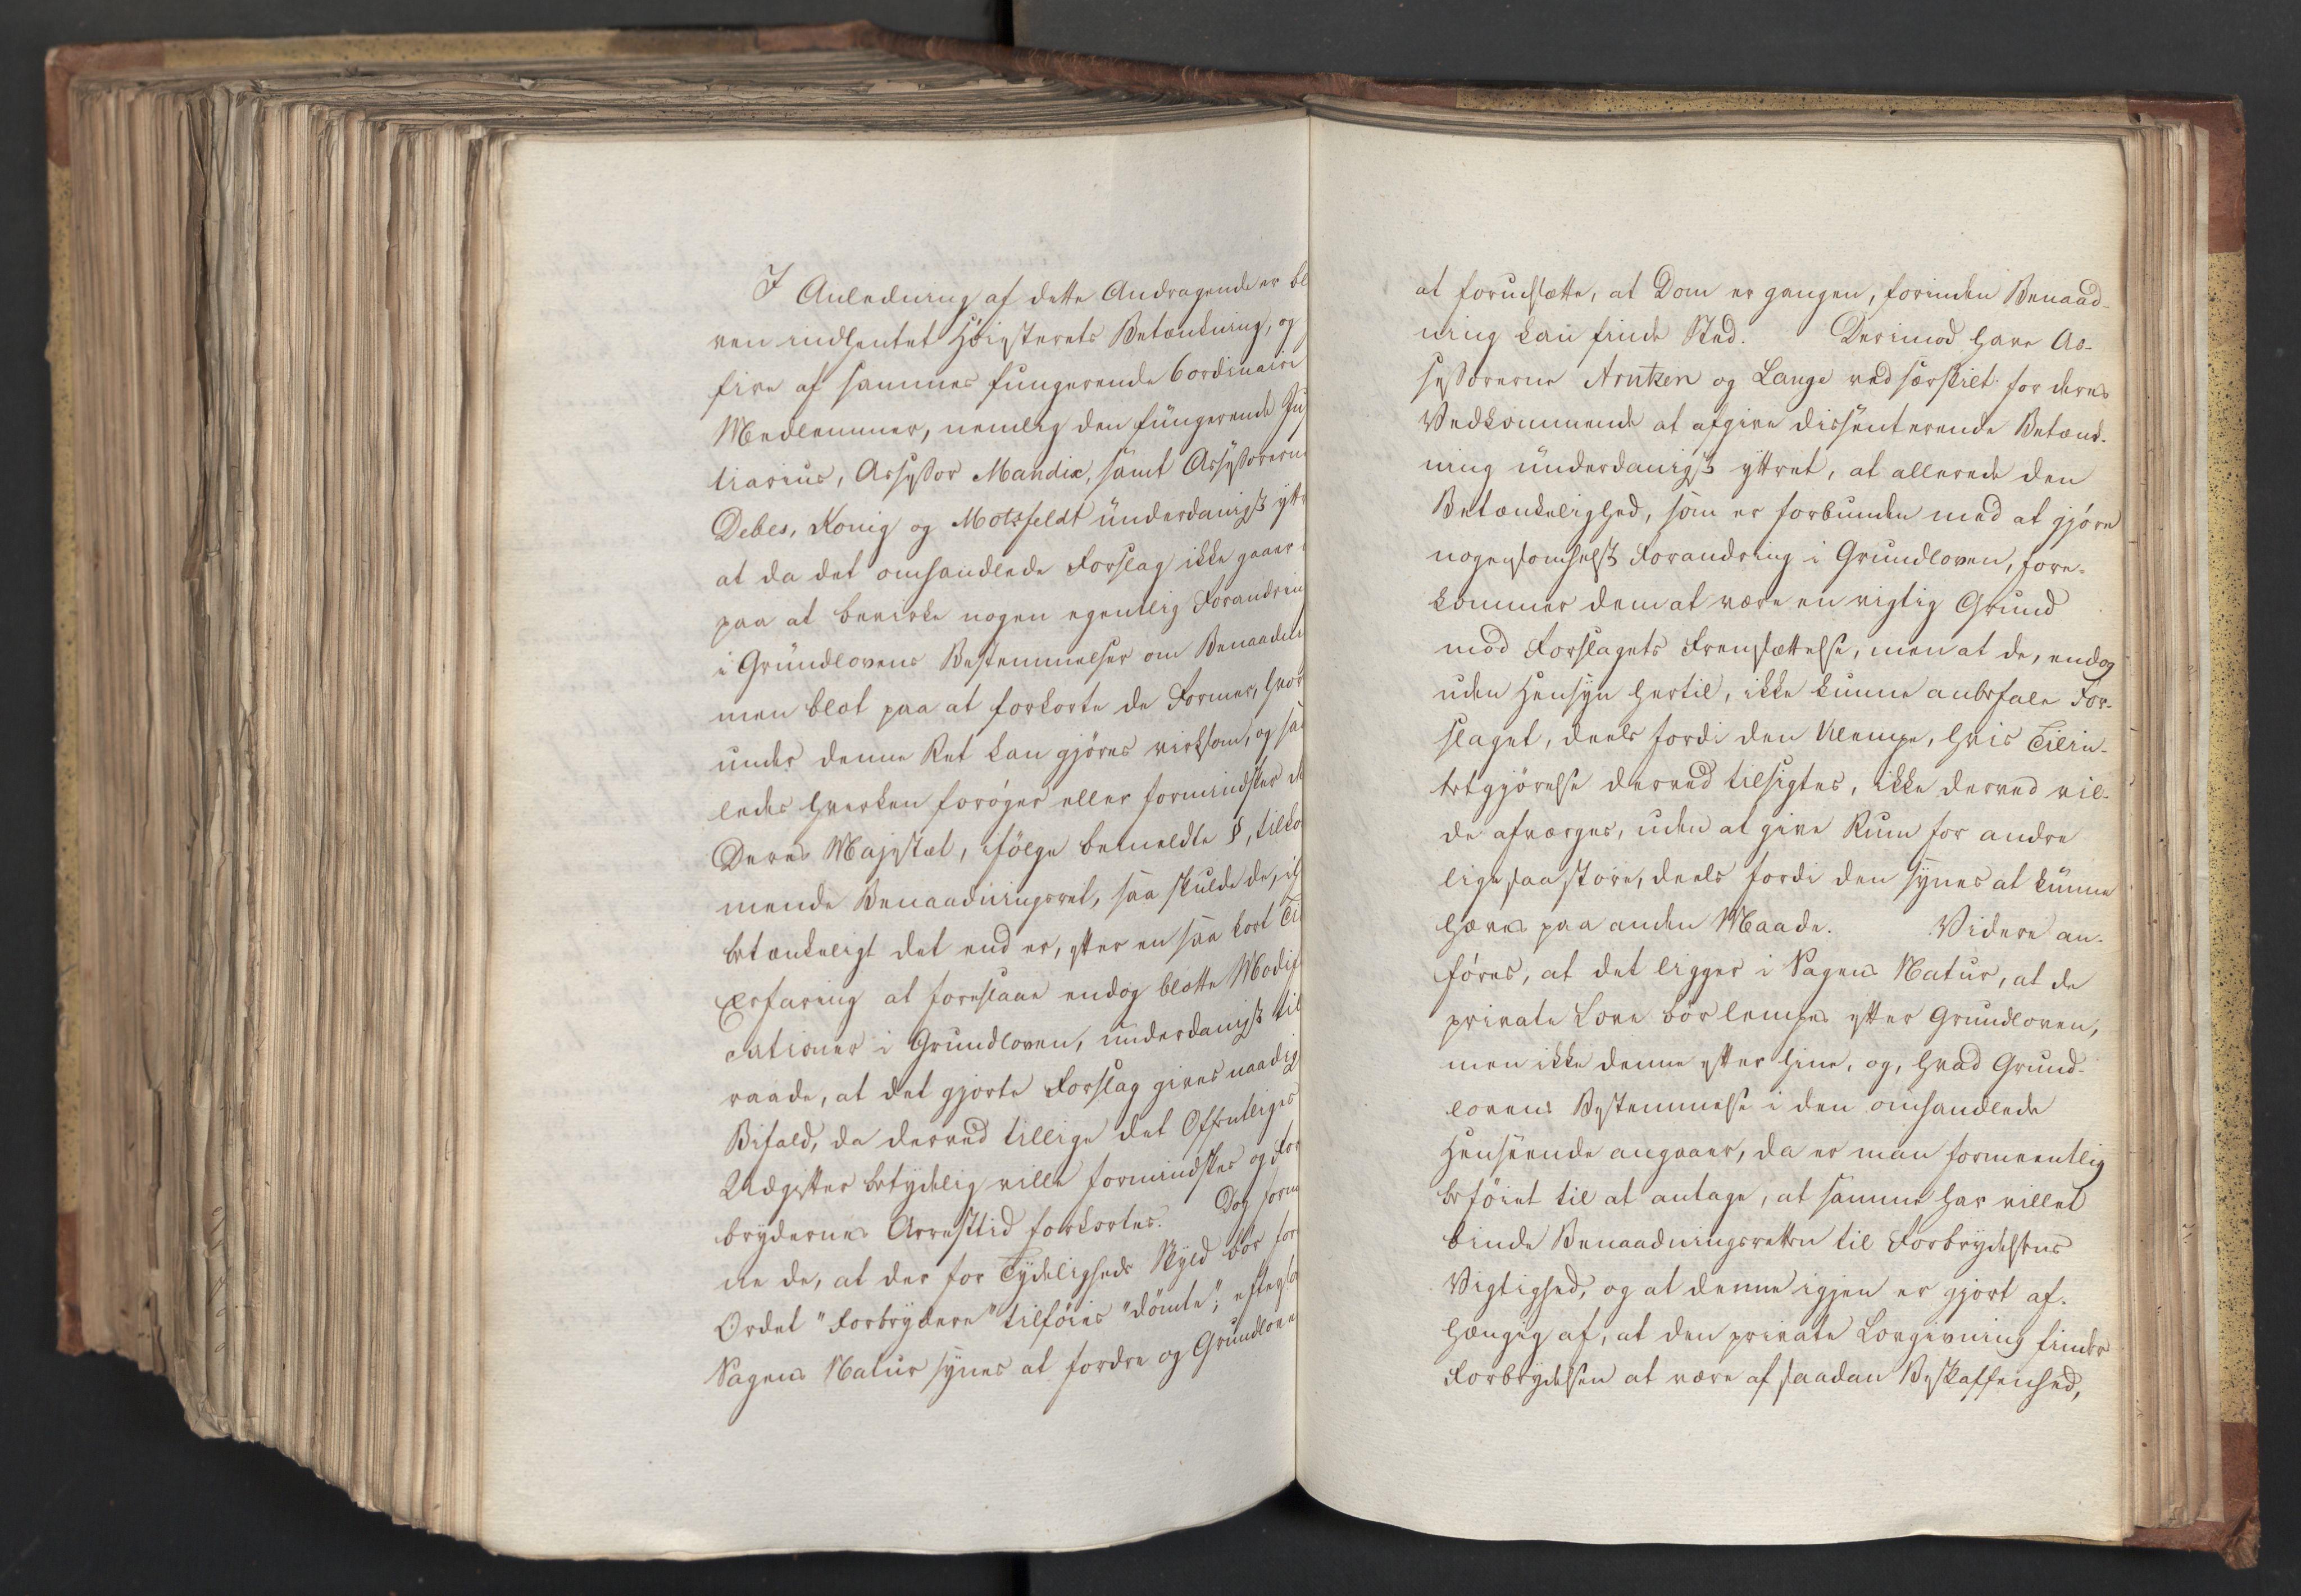 I Anledning af dette Andragende er bl
ven indhentet Höiesterets Betænkning, og
fire af sammes fungerende 6 ordinaire
Medlemmer, nemlig den fungerende Ju
tiarius, Assessor Mandix, samt Assessorern
Debes, Konig og Motzfeldt underdanigst ytt
at da det omhandlede Forslag ikke gaaer
paa at bevirke nogen egentlig Forandrin
i Grundlovens Bestemmelser om Benaadni
men blot paa at forkorte de Former, hvor
under denne Ret kan gjöres virksom, og saa
ledes hverken foröger eller formindsker d
Deres Majestæt, ifölge bemeldte §, tilko
mende Benaadningsret, saa skulde de, i
betænkeligt det end er, efter en saa kort Ti
Erfaring at foreslaae endog blotte Modifi
cationer i Grundloven, underdanigst til
raade, at det gjorte Forslag gives naadig
Bifald, da derved tillige det Offentliges
Udgifter betydelig ville formindskes og For
brydernes Arresttid forkortes. Dog forme
ne de, at der for Tydeligheds Skyld bör for
Ordet "Forbrydere" tilföies "dömte"; efters
Sagens Natur synes at fordre og Grundlove
at forudsætte, at Dom er gangen, forinden Benaad-
ning kan finde Sted. Derimod have As-
sessorerne Arntzen og Lange ved særskilt for deres
Vedkommende at afgive dissenterende Betænk-
ning underdanigst yttret, at allerede den
Betænkelighed, som er forbunden med at gjöre
nogensomhelst Forandring i Grundloven, fore-
kommer dem at være en vigtig Grund
mod Forslagets Fremsættelse, men at de, endog
uden Hensyn hertil, ikke kunne anbefale For-
slaget, deels fordi den Ulempe, hvis Tilin-
tetgjörelse derved tilsigtes, ikke derved vil-
de afværges, uden at give Rum for andre
ligesaa store, deels fordi den synes at kunne
hæves paa anden Maade. Videre an-
föres, at det ligger i Sagens Natur, at de
private Love bör lempes efter Grundloven,
men ikke denne efter hine, og, hvad Grund-
lovens Bestemmelse i den omhandlede
Henseende angaaer, da er man formeentlig
beföiet til at antage, at samme har villet
binde Benaadningsretten til Forbrydelsens
Vigtighed, og at denne igjen er gjort af-
hængig af, at den private Lovgivning finder
Forbrydelsen at være af saadan Beskaffenhed,